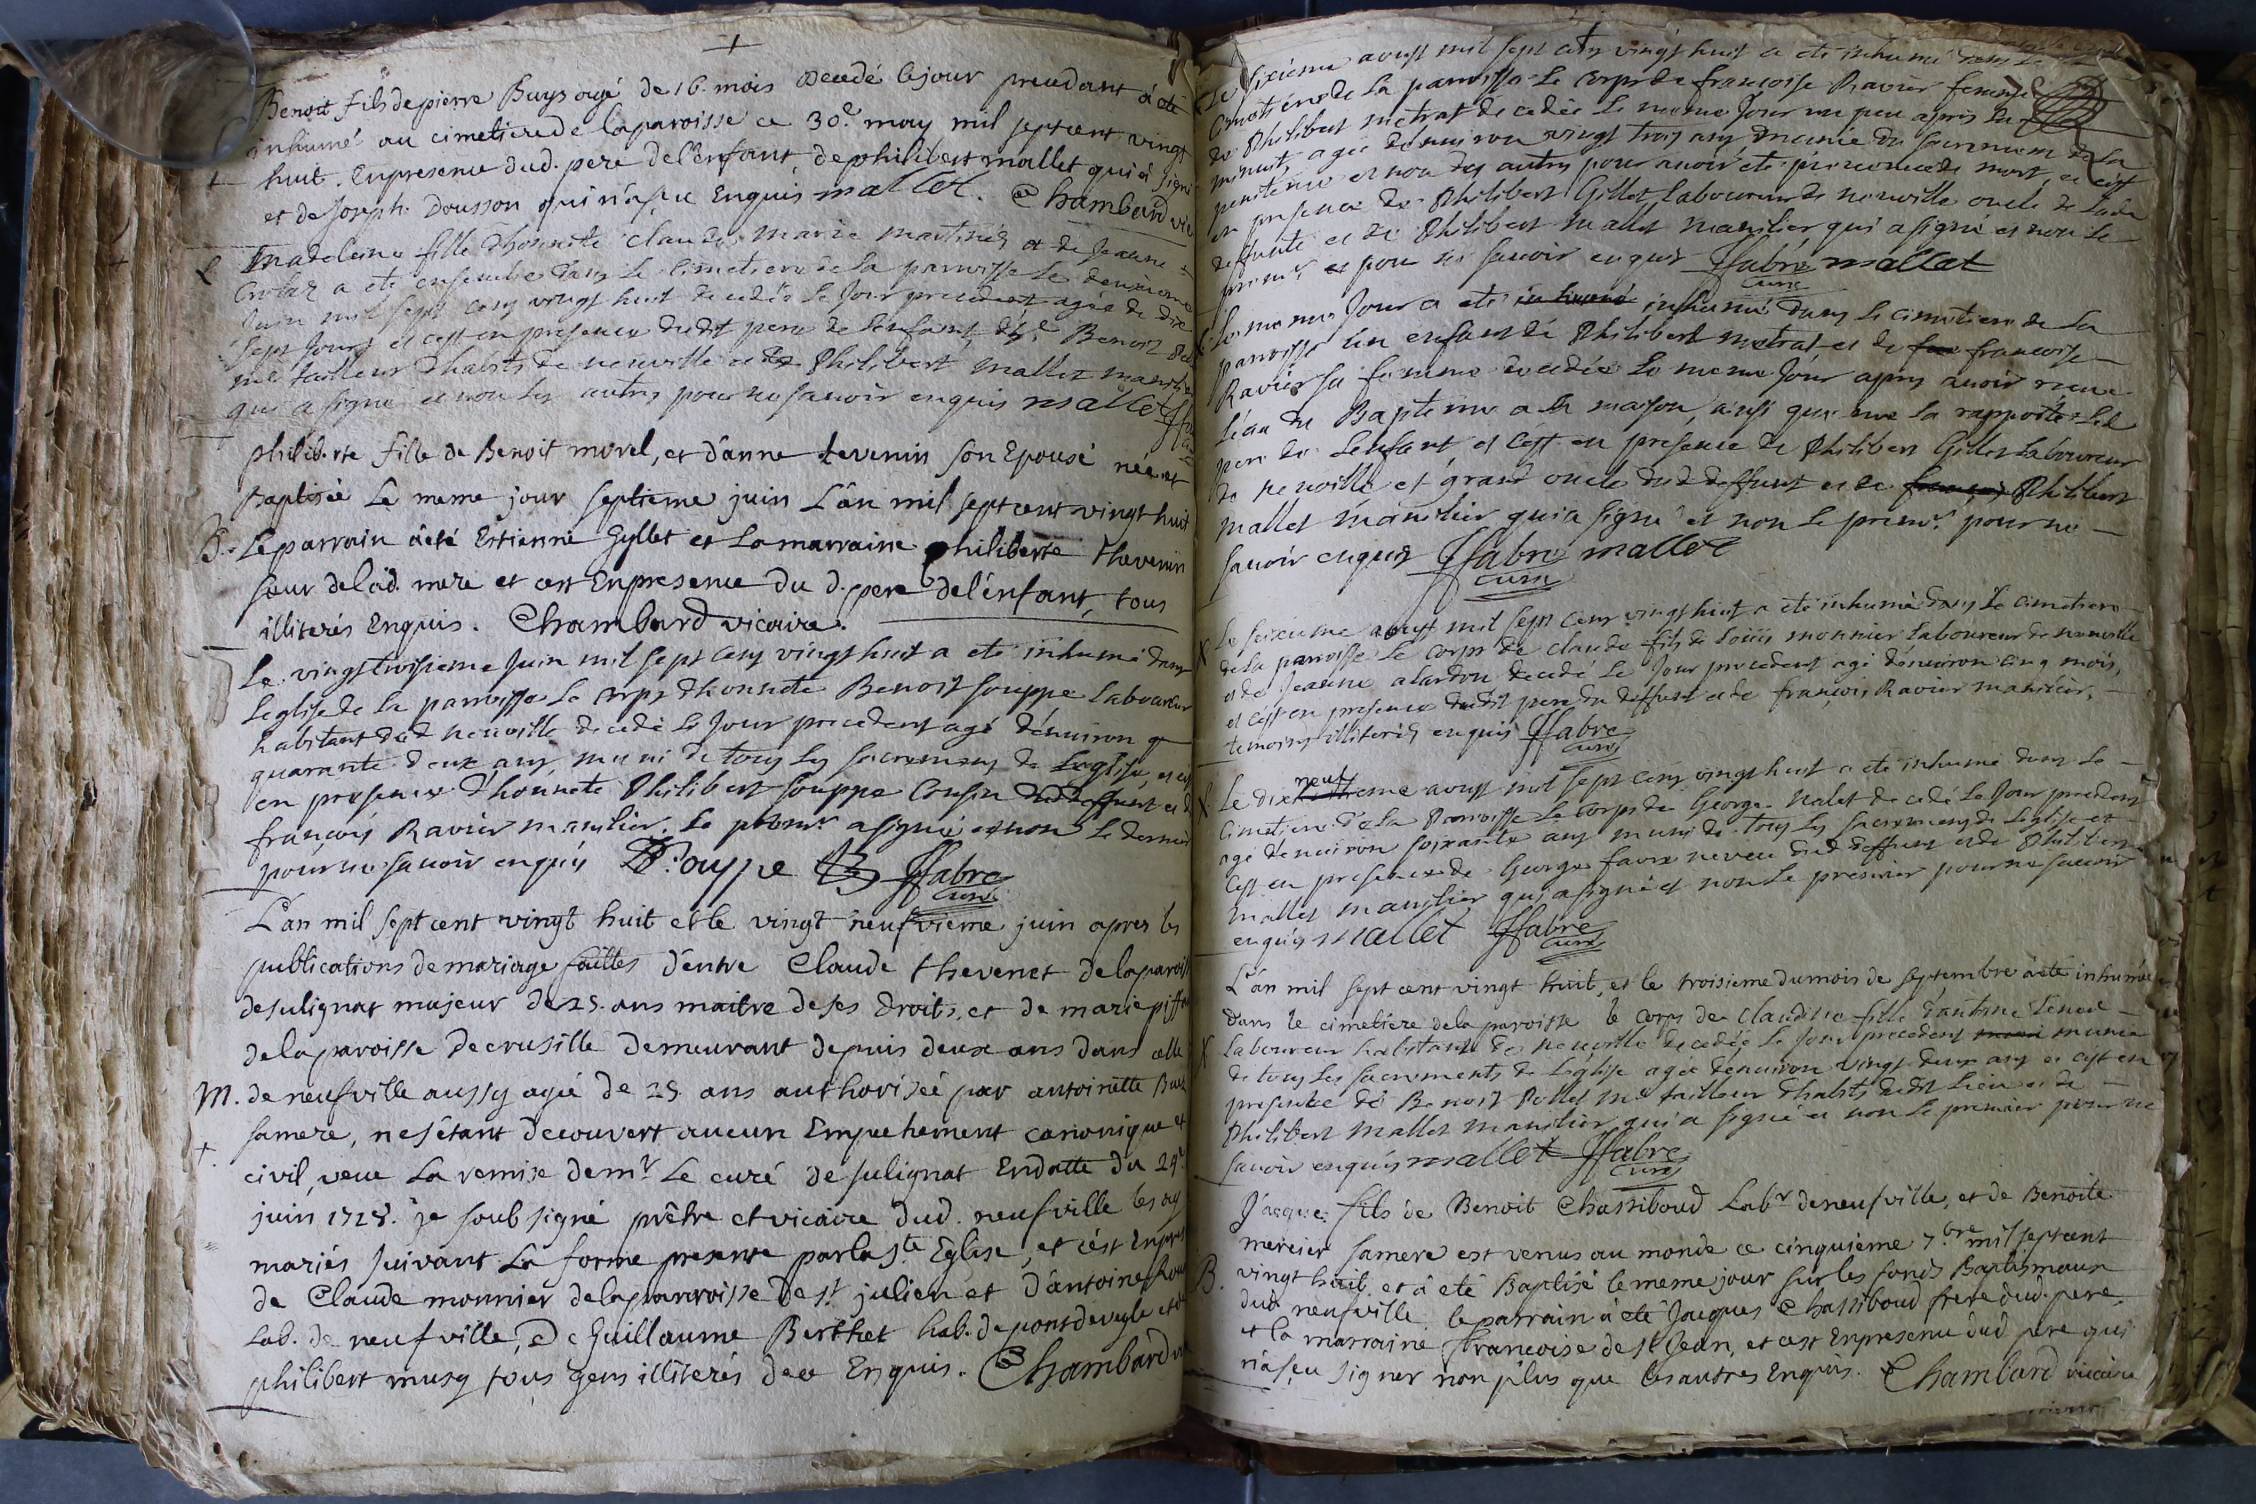 Benoit fils de pierre Buys agé de 16. mois decedé le jour precedent à eté
inhumé au cimetiere de la paroisse ce 30.e may mil sept cent vingt
huit. En presence dud. pere de l'enfant de philibert mallet qui a signé
et de Joseph Dousson qui n'a sçu Enquis mallet. Chambard vic
Madeleine fille d'honnete Claude Marie martinez et de Jeanne
a eté ensevelie dans le cimetiere de la parroisse le deuxieme
Juin mil sept cens vingt huit decedée le Jour precedent agée de dix
sept Jours et c'est en presence dudit pere de l'enfant, de Benoit
tailleur d'habits de neuville et de Philibert mallet manilier
qui a signé et non les autres pour ne savoir enquis mallet
philiberte fille de Benoit morel, et d'anne tevenin son Epouse née et
Baptisée le meme jour septieme juin L'an mil sept cent vingt huit
B. Le parrain à eté Estienne Gyllet et la marraine philiberte thevenin
sœur de lad. mere et c'est En presence du d. pere de l'enfant, tous
illiterés Enquis. Chambard vicaire.
Le vingt troisieme Juin mil sept cens vingt huit a eté inhumé dans
l'eglise de la parroisse le corps d'honnete Benoit souppe laboureur
habitant dud neuville decedé le Jour precedent agé d'environ
quarante deux ans, muni de tous les sacremens de l'eglise, et c'est
en presence d'honnete Philibert souppe Cousin dud deffunt et de
françois Ravier manilier. Le premr a signé et non le dernier
pour ne savoir enquis Souppe ffabre
curé
L'an mil sept cent vingt huit et le vingt neufvieme juin apres les
publications de mariage faittes d'entre Claude thevenet de la paroisse
de sulignat majeur de 25. ans maitre de ses droits, et de marie piffa
de la paroisse de crusille demeurant depuis deux ans dans celle
M. de neufville aussy agée de 25 ans authorisée par antoinette Buz
sa mere, ne s'etant decouvert aucun Empechement canonique et
civil, veue la remise de mr le curé de sulignat En datte du 29e.
juin 1728. je soub signé prêtre et vicaire dud. neufville les ay
mariés suivant la forme presente par la ste Eglise, et c'est En pres
de Claude monnier de la parroisse de st. julien et d'antoine Rou
Lab. de neufville, de Guillaume Berthet hab. de pont de veyle et de
philibert musy tous gens illiterés de ce Enquis. Chambard vic
Le sixieme aoust mil sept cens vingt huit a eté inhumé dans le
cimetiere de la parroisse le corps de francoise Ravier femme
de Philibert metrat decedée le meme Jour un peu après la
minuit, agée d'environ vingt trois ans, munie du sacrement de la
penitence et non des autres pour avoir eté
en presence de Philibert Gillet laboureur de neuville oncle de lade
deffunte et de Philibert mallet manilier qui a signé et non le
premr. pour ne savoir enquis ffabre mallet
curé
Le meme Jour a eté inhumé inhumé dans le cimetiere de la
parroisse un enfant de Philibert metrat et de francoise
Ravier sa femme decedée le meme Jour apres avoir receue
l'eau du Bapteme a la maison, ainsi que me la rapporté led
pere de l'enfant et c'est en presence de Philibert Gillet laboureur
de neuville et grand oncle dud deffunt et de francois Philibert
mallet manilier qui a signé et non le premr. pour ne
savoir enquis ffabre mallet
curé
Le seizieme aoust mil sept cens vingt huit a eté inhumé dans le cimetiere
de la parroisse le corps de claude fils de Louis monnier laboureur de neuville
et de Jeanne alardon decedé le Jour precedent agé d'environ cinq mois,
et c'est en presence dudit pere du deffunt et de françois Ravier manilier,
temoins illiterés enquis ffabre
curé
neuf
Le dix eme aoust mil sept cens vingt huit a eté inhumé dans le
cimetiere de la Parroisse le corps de George Nalet decedé le Jour precedent
agé d'environ soixante ans muni de tous les sacremens de l'eglise et
c'est en presence de George favre neveu dud deffunt et de Philibert
mallet manilier qui a signé et non le premier pour ne savoir
enquis mallet ffabre
curé
L'an mil sept cent vingt huit, et le troisieme du mois de septembre à eté inhumée
dans le cimetiere de la paroisse le corps de Claudine fille d'antoine
laboureur habitant de neuville decedée le Jour precedent muni munie
de tous les sacrements de l'eglise agée d'environ vingt deux ans et c'est en
presence de Benoit Pollet me tailleur d'habits dudit lieu et de
Philibert mallet manilier qui a signé et non le premier pour ne
savoir enquis mallet ffabre
curé
Jacques fils de Benoit Chassiboud Labr. de neufville, et de Benoite
mercier sa mere est venus au monde ce cinquieme 7.bre mil sept cent
B. vingt huit et à eté Baptisé le meme jour sur les fonds Baptismaux
dud neufville, le parrain à eté Jacques Chassiboud frere dud. pere.
et la marraine francoise de st Jean, et c'est En presence dud pere qui
n'a sçu signer non plus que les autres Enquis. Chambard vicaire